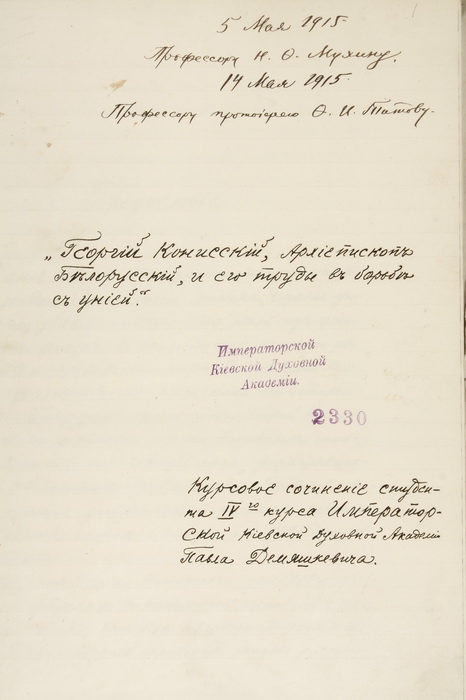 5 Мая 1915
Профессору Н. Ѳ. Мухину.
14 Мая 1915.
Профессору протоіерею Ѳ. И. Титову.
„Георгій Конисскій, Архіепископъ
Бѣлорусскій, и его труды въ борьбѣ
съ уніей“.
Императорской
Кіевской Духовной
Академіи.
2330
Курсовое сочиненіе студен-
та IV го курса Император-
ской Кіевской Духовной Академіи
Павла Демяшкевича.